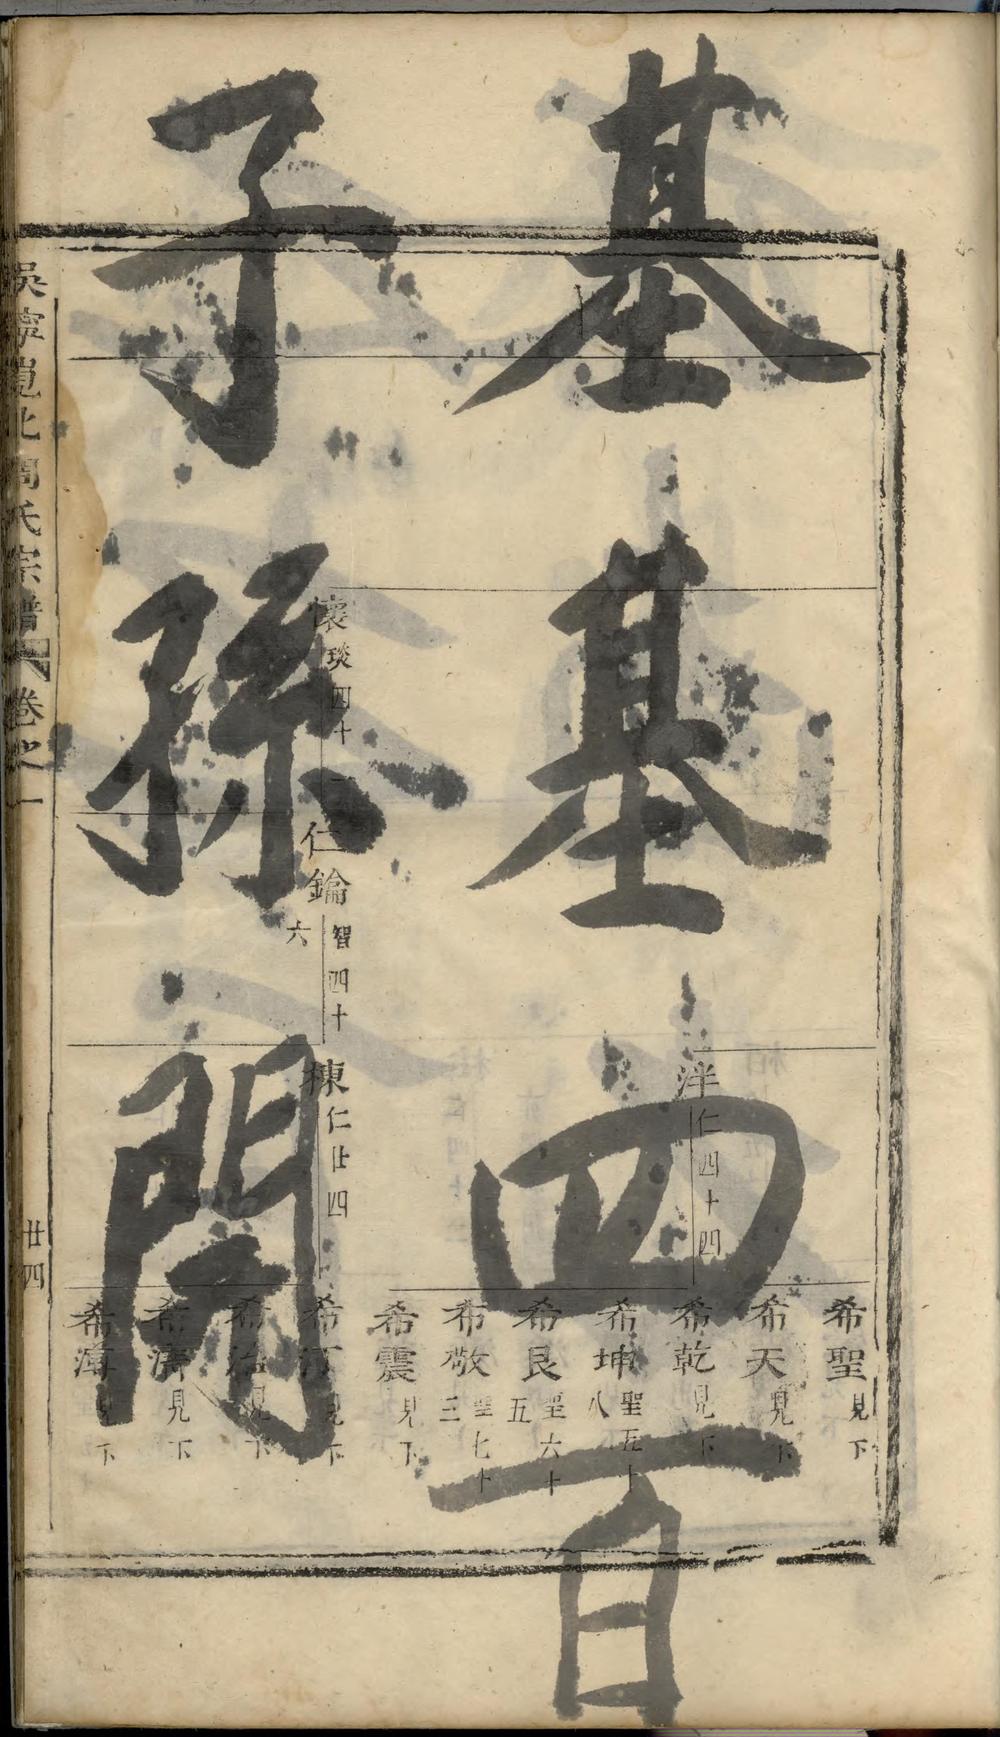 基基四百
子孫
洋仁四十四
懷琰四十一
仁鑰智四十六
棟仁廿四
希聖見下
希天見下
希乾見下
希坤聖五十八
希艮聖六十五
希敬聖七十三
希震見下
希江見下
希治見下
希見下
希見下
吳寧北周氏宗譜
卷之一
廿四